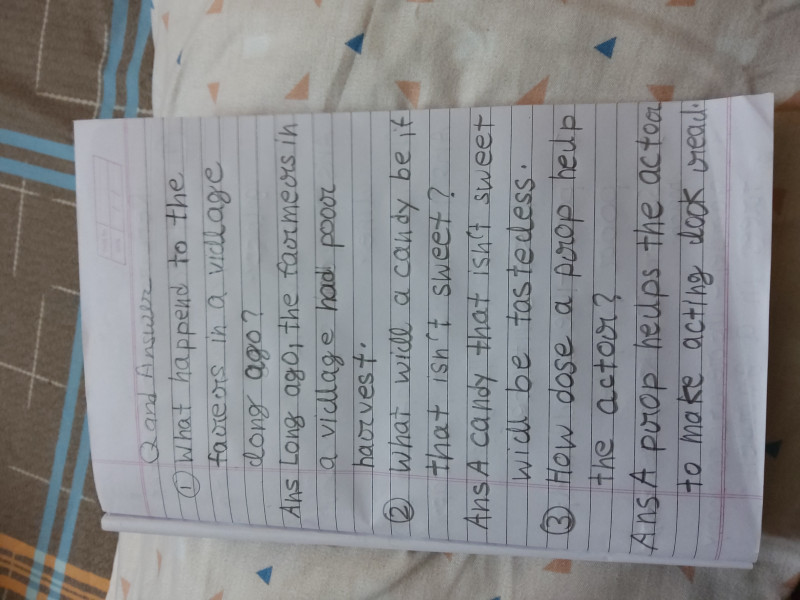 Q and Answer
① What happend to the
faireors in a village
long ago?
Ans Long ago, the fairmeors in
a village had poor
hairvest.
② What will a candy be if
that isn't sweet?
Ans A candy that isn't sweet
will be tasteless.
③ How dose a prop help
the actor?
Ans A prop helps the actor
to make acting look real.